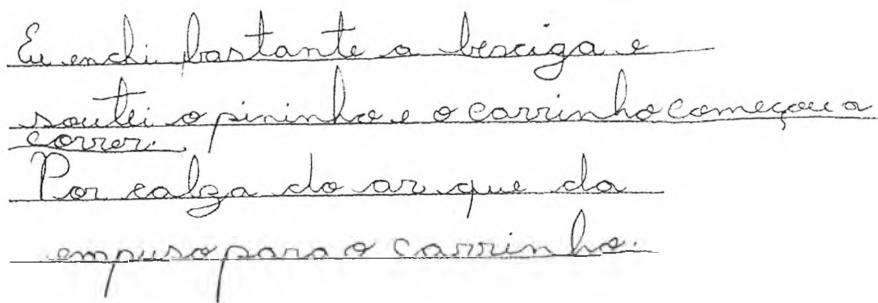 Eu enchi bastante a besciga e
soutei o pininho e o carrinho começou a
correr.
Por calga do ar que da
empuso para o carrinho.